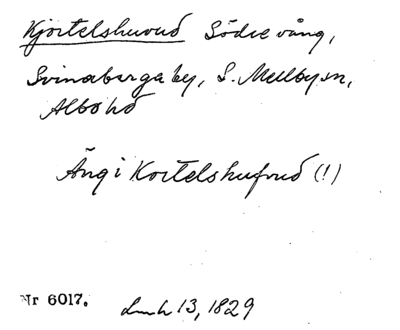 Kjortelshuvud Södre vång,
Svinaberga by, S. Mellby sn,
Albo hd
Äng i Kortelshufvud (!)
Nr 6017. Lmh 13, 1829